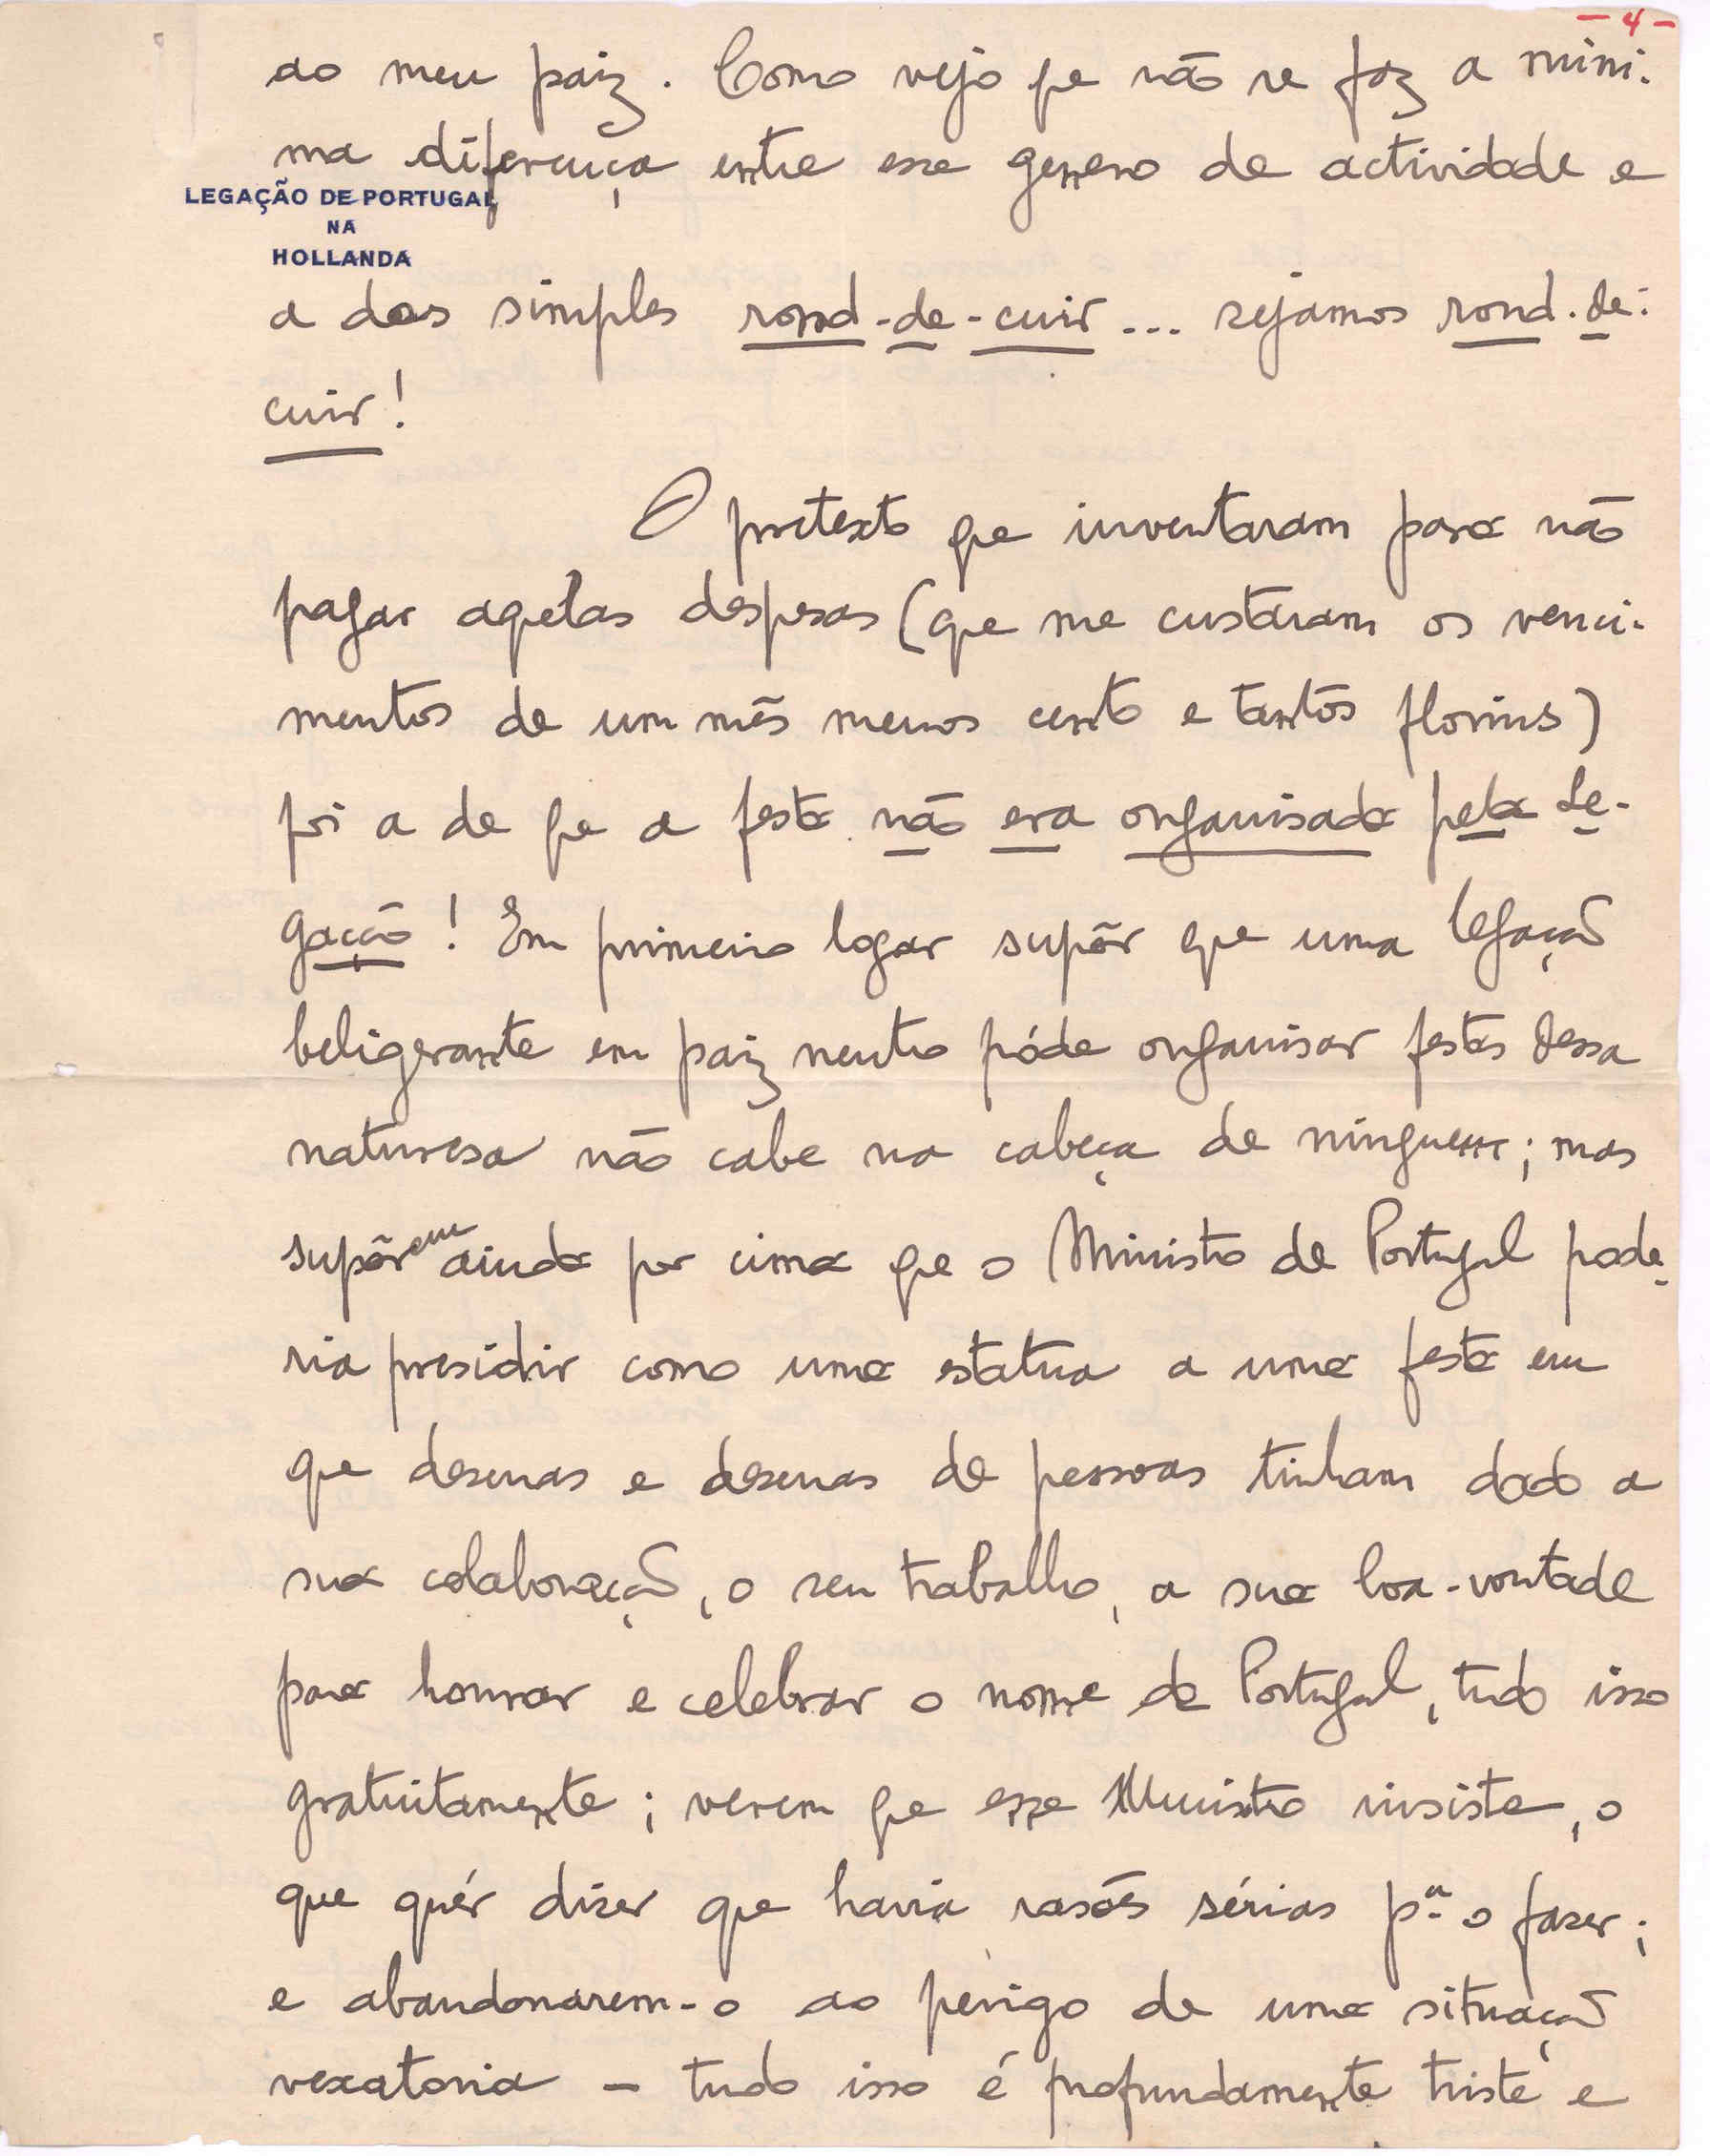 - 4 -
ao meu paiz. Como vejo que não se faz a mini-
ma diferença entre esse genero de actividade e
LEGAÇÃO DE PORTUGAL
NA
HOLLANDA
a dos simples rond-de-cuir... sejamos rond-de-
cuir!
O pretexto que inventaram para não
pagar aquelas despesas (que me custaram os venci-
mentos de um mês menos cento e tantos florins)
foi a de que a festa não era organisada pela Le-
gação! Em primeiro logar supôr que uma legação
beligerante em paiz neutro póde organisar festas dessa
naturesa não cabe na cabeça de ninguem; mas
supôrem ainda por cima que o Ministro de Portugal pode-
ria presidir como uma estatua a uma festa em
que desenas e desenas de pessoas tinham dado a
sua colaboração, o seu trabalho, a sua boa-vontade
para honrar e celebrar o nome de Portugal, tudo isso
gratuitamente; verem que esse Ministro insiste, o
que quér diser que havia rasões sérias pª o faser;
e abandonarem-o ao perigo de uma situação
vexatoria - tudo isso é profundamente triste e